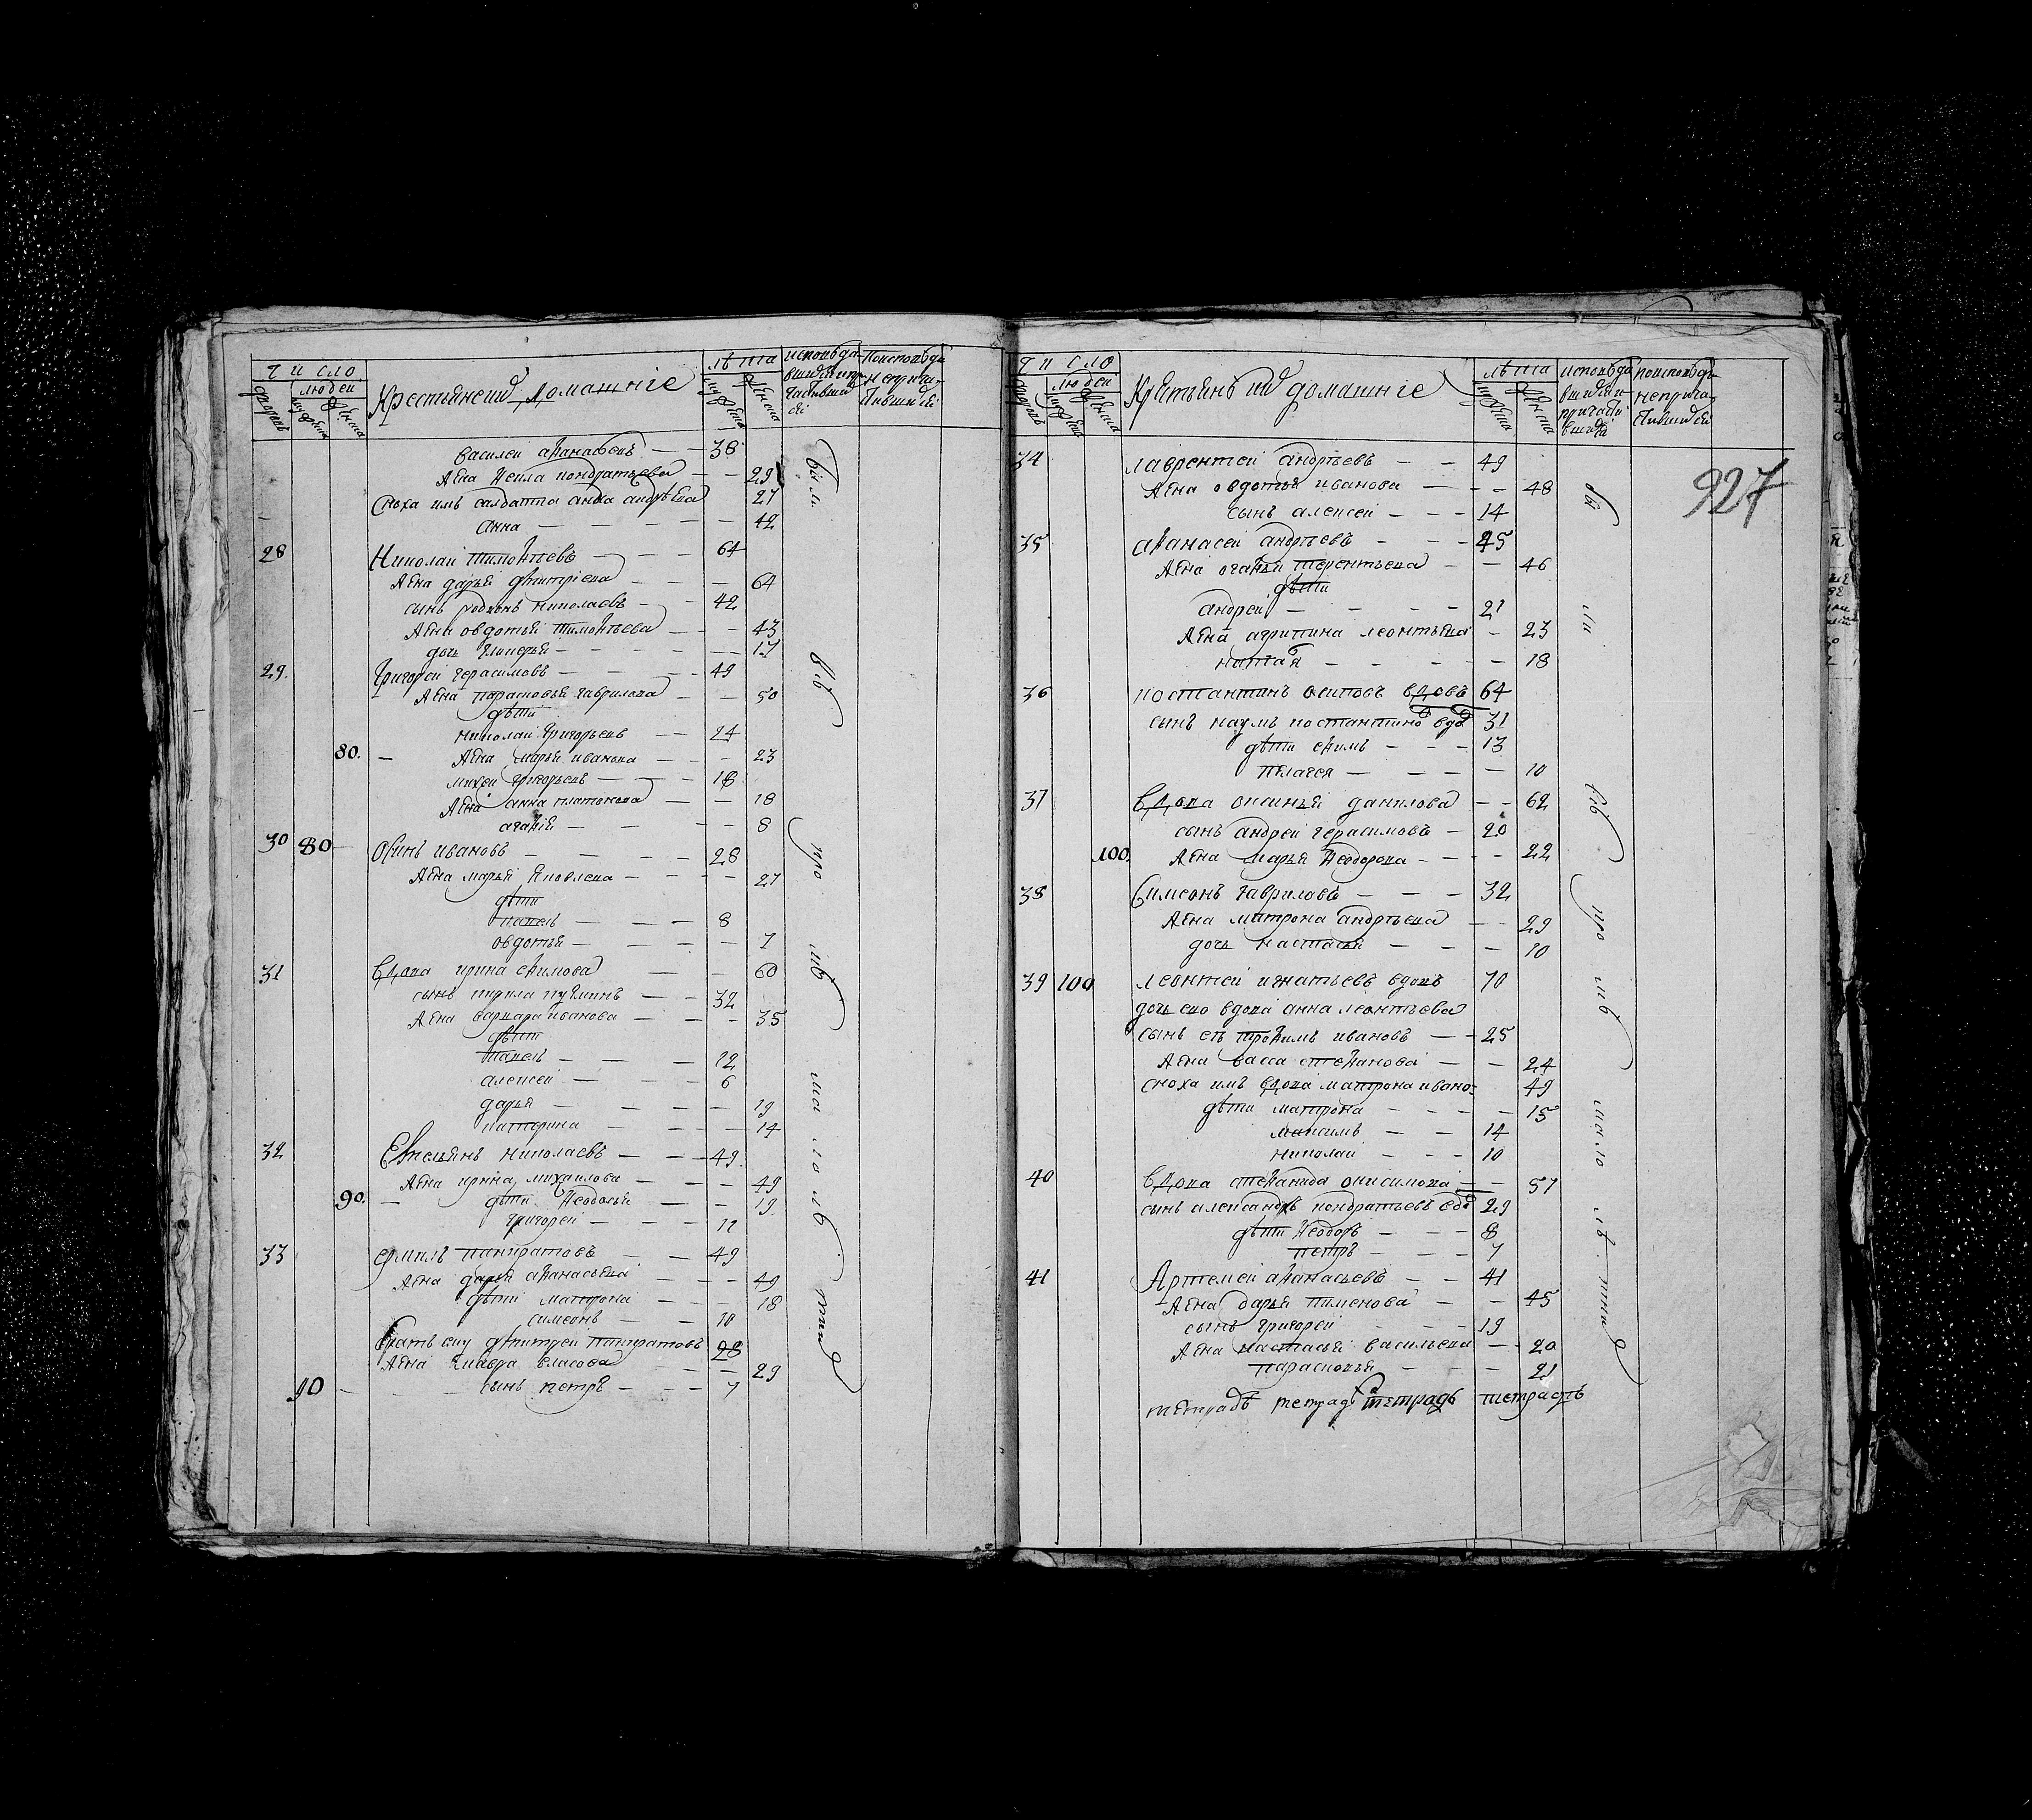 число лѣта исповѣда- Поисповѣди
людеи Крестьянеихъ домашніе вшихся и при- неприча-
дворовъ мужеска женска мужеска женска частивши стившихся
Василеи аѳанасьевъ — — 38
жена Ѳекла кондратьева — — 29
Сноха имъ салдатка анна андрѣева 27
анна — — — — — 42
28 Николаи тимоѳѣевъ — — — 64
жена дарья дмитріева — — — 64
сынъ родионъ николаевъ — — 42
жена овдотья тимоѳѣева — — 43
дочь гликерья — — — — — 17
29. Григореи герасимовъ — — — 49
жена парасковья гаврилова — — 50
дѣти
николаи григорьевъ — — 24
80. — жена марья иванова — — — 23
михеи григорьевъ — — — 18
жена анна платонова — — 18
агаѳія — — — — 8
30 80 — Осипъ ивановъ — — — — 28
жена марья яковлева — — — — 27
дѣти
павелъ — — — 8
овдотья — — — — 7
31 Вдова ирина еѳимова — — 60
сынъ кирила кузминъ — — 32
жена варвара иванова — — — 35
дѣти
павелъ — — — 12
алексеи — — — 6
дарья — — — — 19
катерина — — — — 14
32 Емельянъ николаевъ — — — 49
жена ирина михаилова — — — 49
90. — дѣти Ѳеодосья — — 19
григореи — — — 11
33 ермилъ панкратовъ — — 49
жена дарья аѳанасьева — — — 49
дѣти матрона — — — 18
симеонъ — — 10
Братъ ему дмитреи панкратовъ 28
жена власова — — 29
90 — — — сынъ петръ — — — 7
были въ про шломъ лѣ тѣ
число лѣта исповѣда поисповѣди
людеи Крстьянъ ихъ домашніе вшихся и неприча-
дворовъ мужеска женска мужеска женска причасти вшихся стившихся
927
34 лаврентеи андрѣевъ — — 49
жена овдотья иванова — — — 48
сынъ алексеи — — — 14
35 аѳанасеи андрѣевъ — — — 45
жена огаѳья терентьева — — 46
дѣти
андреи — — — — 21
жена агрипина леонтьева — 23
— — — — — 18
36 костантинъ осиповъ вдовъ 64
сынъ наумъ костантино вдо 31
дѣти еѳимъ — — — 13
пелагея — — — — 10
37 Вдова оксинья данилова — — 62
сынъ андреи герасимовъ — 20
100. жена марья Ѳеодорова — — — — 22
38 Симеонъ гавриловъ — — — 32
жена матрона андрѣева — — 29
дочь настасья — — — 10
39 100 леонтеи игнатьевъ вдовъ 70
дочь ево вдова анна леонтьева
сынъ еѣ троѳимъ ивановъ — — 25
жена васса степанова — — 24
сноха имъ вдова матрона ивано: 49
дѣти матрона — — — — 15
максимъ — — 14
николаи — — — 10
40 Вдова степанида онисимова — — 51
сынъ александръ кондратьевъ вдо 29
дѣти Ѳеодоръ — — — 8
петръ — — — 7
41 Артемеи аѳанасьевъ — — 41
жена дарья пименова — — 45
сынъ григореи — — — 19
жена настасья васильева — — 20
парасковья — — — 21
тетрадь тетрадь тетрадь тетрадь